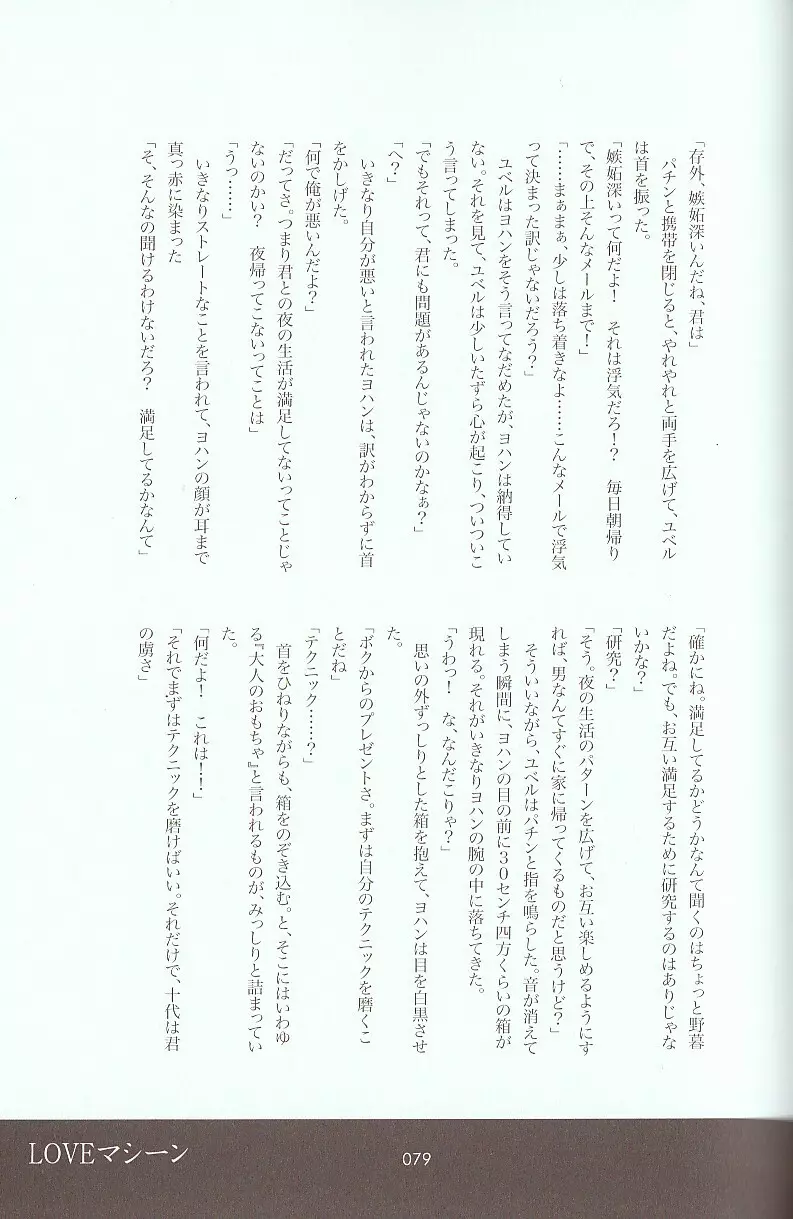 「存外、嫉妬深いんだね、君は」
　パチンと携帯を閉じると、やれやれと両手を広げて、ユベル
は首を振った。
「嫉妬深いって何だよ！　それは浮気だろ！？　毎日朝帰り
で、その上そんなメールまで！」
「……まぁまぁ、少しは落ち着きなよ……こんなメールで浮気
って決まった訳じゃないだろう？」
　ユベルはヨハンをそう言ってなだめたが、ヨハンは納得してい
ない。それを見て、ユベルは少しいたずら心が起こり、ついついこ
う言ってしまった。
「でもそれって、君にも問題があるんじゃないのかなぁ？」
「へ？」
　いきなり自分が悪いと言われたヨハンは、訳がわからずに首
をかしげた。
「何で俺が悪いんだよ？」
「だってさ。つまり君との夜の生活が満足してないってことじゃ
ないのかい？　夜帰ってこないってことは」
「うっ……」
　いきなりストレートなことを言われて、ヨハンの顔が耳まで
真っ赤に染まった
「そ、そんなの聞けるわけないだろ？　満足してるかなんて」
「確かにね。満足してるかどうかなんて聞くのはちょっと野暮
だよね。でも、お互い満足するために研究するのはありじゃな
いかな？」
「研究？」
「そう。夜の生活のパターンを広げて、お互い楽しめるようにす
れば、男なんてすぐに家に帰ってくるものだと思うけど？」
　そういいながら、ユベルはパチンと指を鳴らした。音が消えて
しまう瞬間に、ヨハンの目の前に３０センチ四方くらいの箱が
現れる。それがいきなりヨハンの腕の中に落ちてきた。
「うわっ！　な、なんだこりゃ？」
　思いの外ずっしりとした箱を抱えて、ヨハンは目を白黒させ
た。
「ボクからのプレゼントさ。まずは自分のテクニックを磨くこ
とだね」
「テクニック……？」
　首をひねりながらも、箱をのぞき込む。と、そこにはいわゆ
る『大人のおもちゃ』と言われるものが、みっしりと詰まってい
た。
「何だよ！　これは！！」
「それでまずはテクニックを磨けばいい。それだけで、十代は君
の虜さ」
LOVEマシーン
079